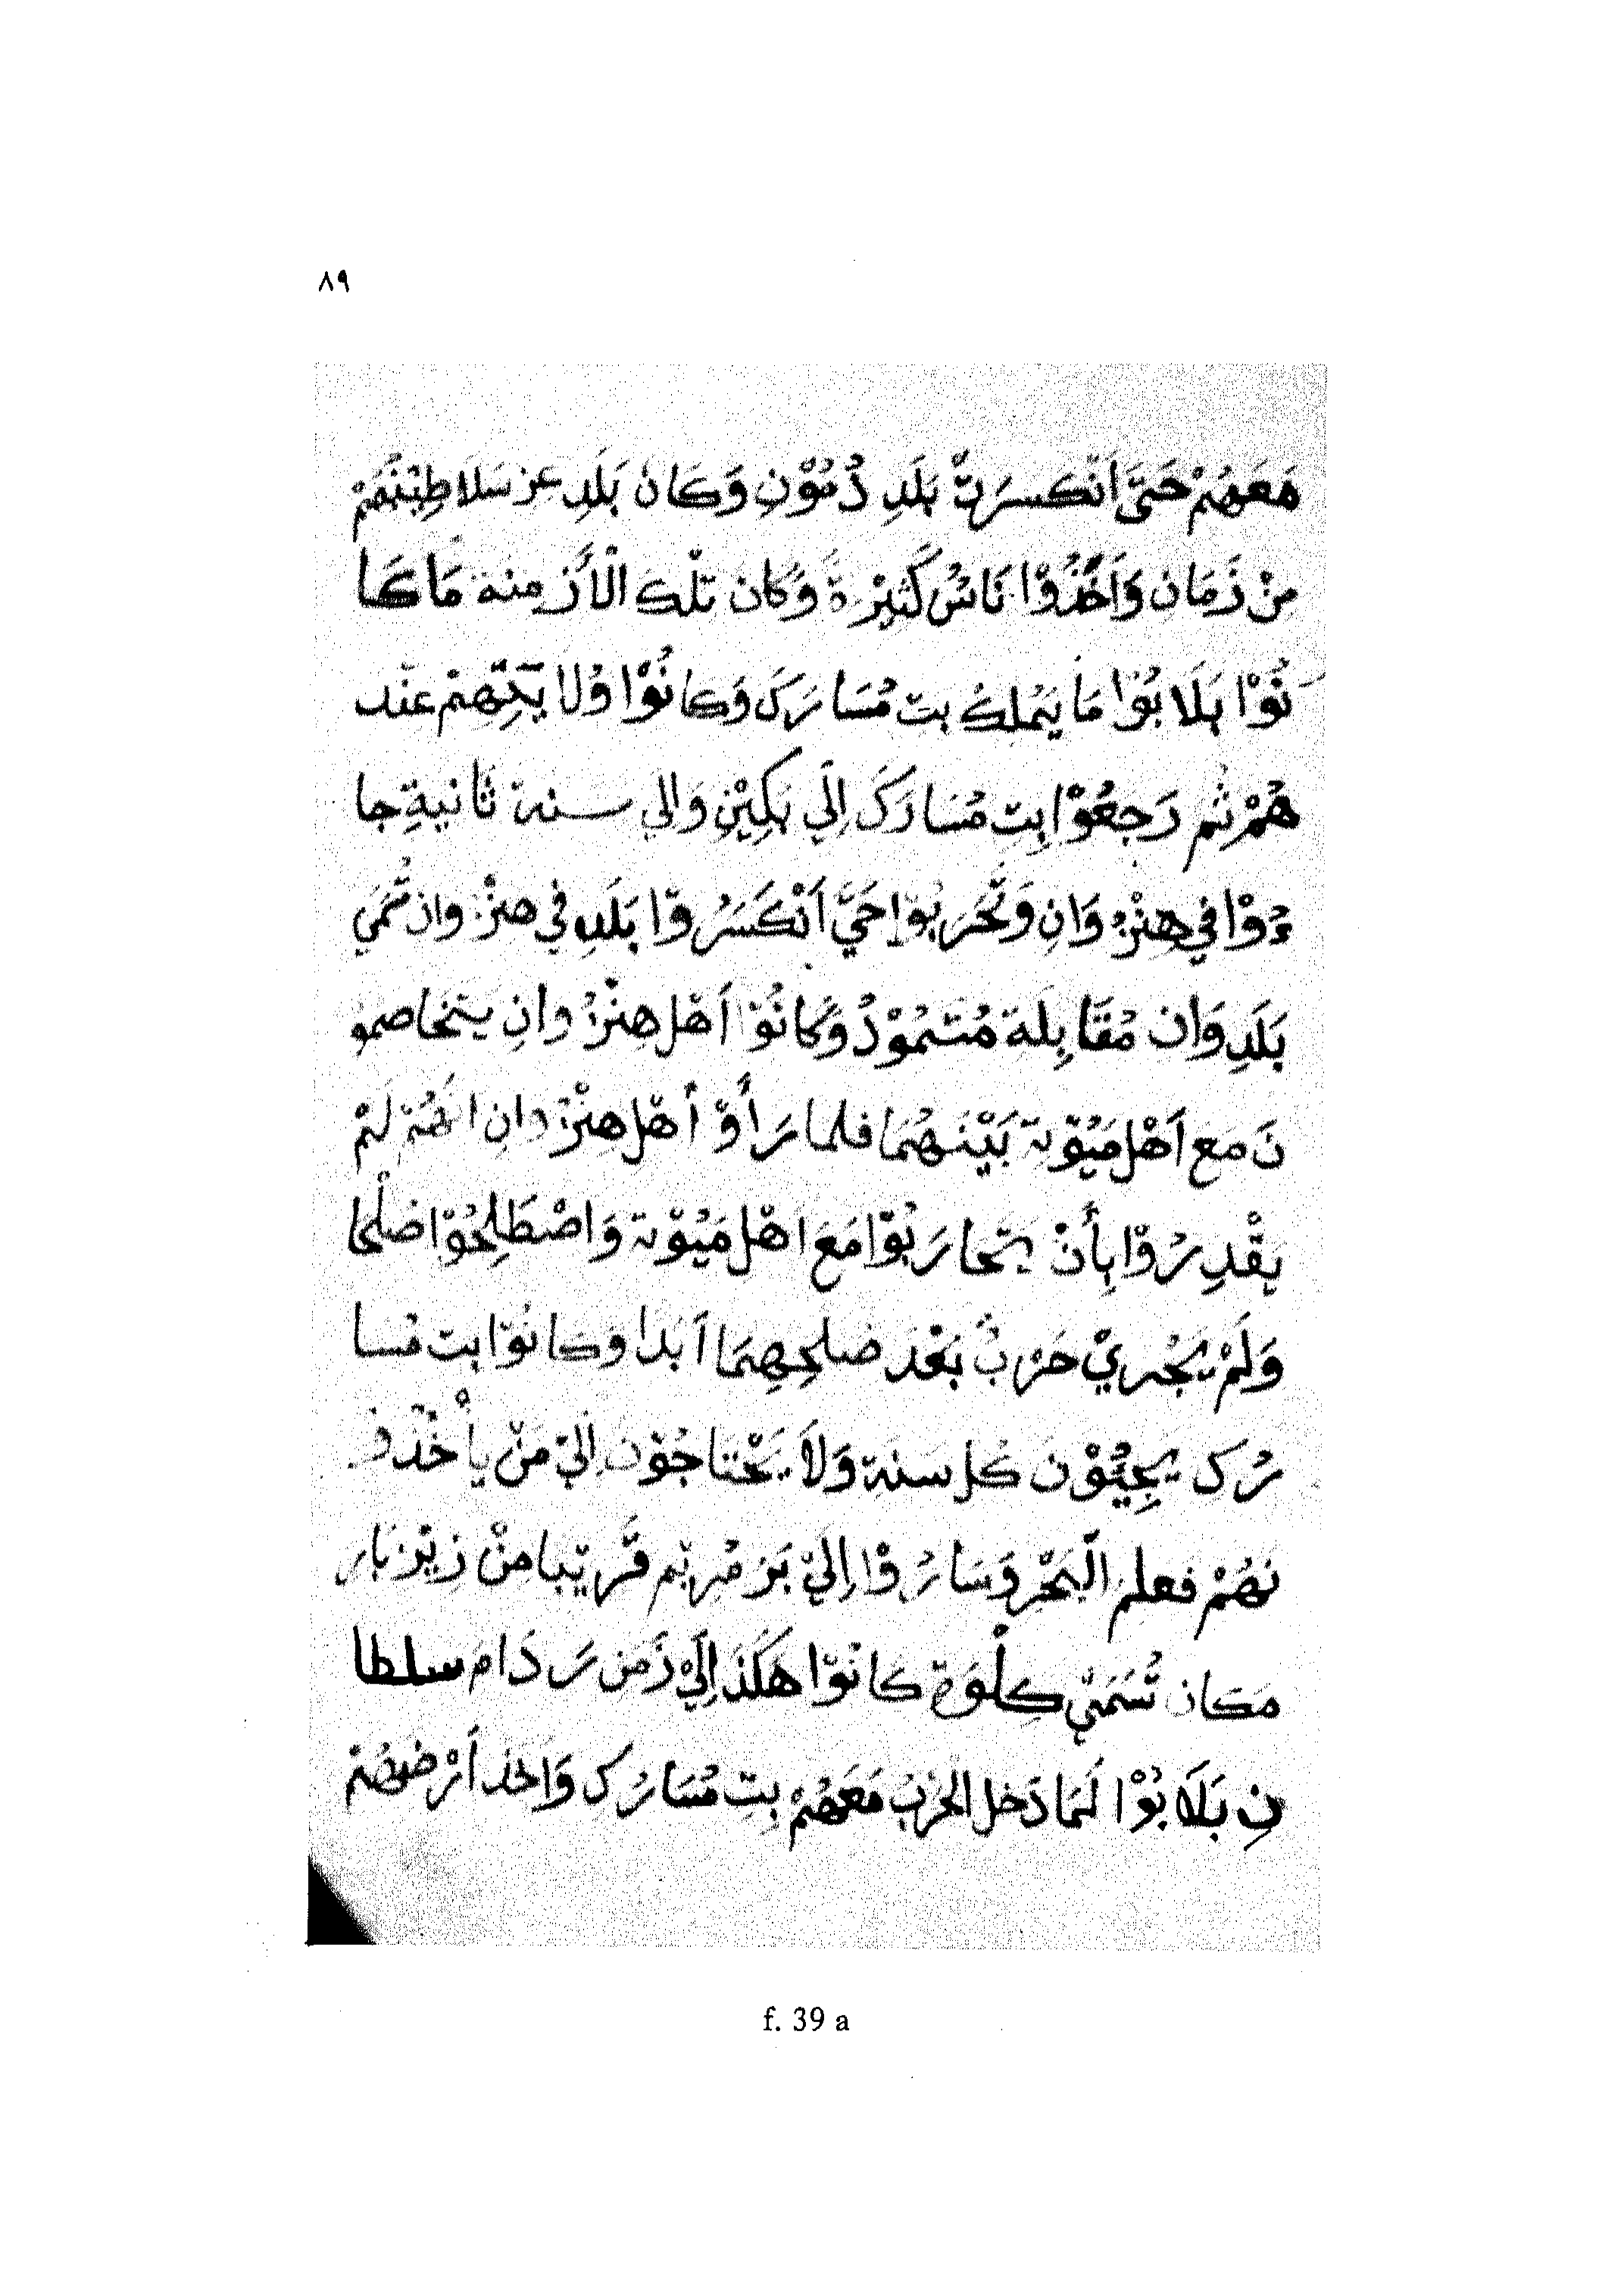 ٨٩
مَعَهُمْ حَتَّى اَنْكَسَرَتْ بَلَدِ دُمُوْنِ وَكَانَ بَلَدِ عز سَلَاطِيْنُهُمْ
مِنْ زَمَانِ وَاَخَذُوْا نَاسُ كَثِيْرَةً وَكَانَ تلْكَ الْأَزمنة مَا كَا
نُوْا بَلَابُوْا مَا يَمْلِكُ بت مُسَا رَكَ وَكَانُوْا وُلَا يَحِبُّهمْ عنْد
هُمْ ثم رَجعُوْا بِت مُسَارَكَ اِلَي بَكِيْنِ وَالي سنة ثَانيةِ جا
ءُوْا في هِنْزُ وَانِ وَتَّحَرَبُوْا حَتَّي اَنْكَسَرُوْا بَلَدِ في هنْزُ وان تُسَمَي
بَلَدِ وَان مُقَابِلَة مُتسَمُوْدُ وَكَانُوْا اَهْل هِنْزُ وانِ يتخاصمو
نَ مَع اَهْل مَيُوْتة بَيْنَهُمَا فلما رَأَوْ أَهْل هِنْزُ وانِ انَّهُمْ لَمْ
يَقْدِرُوْا بِأَنْ يتحارَبُوْا مَعَ اهْل مَيُوْتة وَاصْطَلِحُوْا صُلْحَا
وَلَمْ يَجْري حَرْبٌ بَعْدَ صلحِهِمَا اَبَدا وَكانُوْا بت مُسا
رُكَ يَجِيُؤْنَ كُل سَنة وَلَا يَحْتَاجُوْنَ اِلَيْ مَنْ يأخُذو
نَهُمْ فعلم الْبَحْرِ وَسَارُوْا اِلَيْ بَر مْرِيْم قَرِيْبا مِنْ زِيْزبَارِ
مَكَان تُسَمَيْ كِلْوَة كَانُوْا هَكَذَ اِلَيْ زَمن رَدَامَ سلطا
نِ بَلَابُوْا لَمَا دَخل الحَرْبُ مَعَهُمْ بِت مُسَارُكَ وَاخذ اَرْضهُمْ
f. 39 a